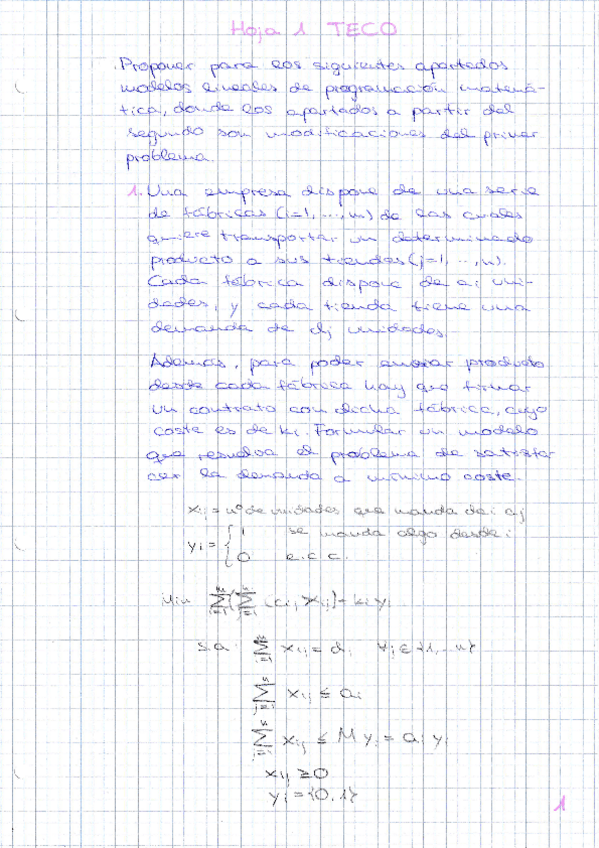 Hoja 1 TECO
Proponer para los siguientes apartados
modelos lineales de programación matemá-
tica, donde los apartados a partir del
segundo son modificaciones del primer
problema.
1. Una empresa dispone de una serie
de fábricas (i=1, ..., m) de las cuales
quiere transportar un determinado
producto a sus tiendas (j=1, ..., n).
Cada fábrica dispone de ai uni-
dades, y cada tienda tiene una
demanda de dj unidades.
Además, para poder enviar producto
desde cada fábrica hay que firmar
un contrato con dicha fábrica, cuyo
coste es de ki. Formular un modelo
que resuelva el problema de satisfa-
cer la demanda a mínimo coste.
xij = nº de unidades que manda de i a j
yi = { 1 se manda algo desde i
0 e.c.c.
Min ∑i=1 (∑j=1 cij xij) + ki yi
s.a. ∑i=1 xij = dj ∀j ∈ {1, ..., n}
∑j=1 xij ≤ ai
∑j=1 xij ≤ M yi = ai yi
xij ≥ 0
yi = {0, 1}
1